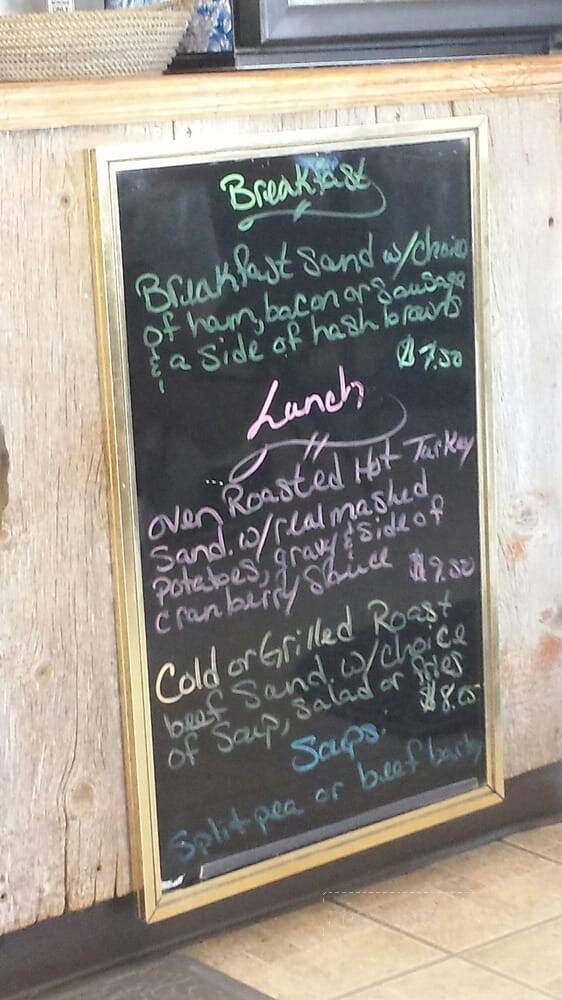 Breakfast
Breakfast Sand w/choice
of ham, bacon or sausage
& a side of hash browns
$7.50
Lunch
... oven Roasted Hot Turkey
Sand. w/real mashed
potatoes, gravy & side of
cranberry sauce $9.50
Cold or Grilled Roast
beef Sand. w/choice
of Soup, Salad or fries
$8.05
Soups.
Split pea or beef barley
ONLY